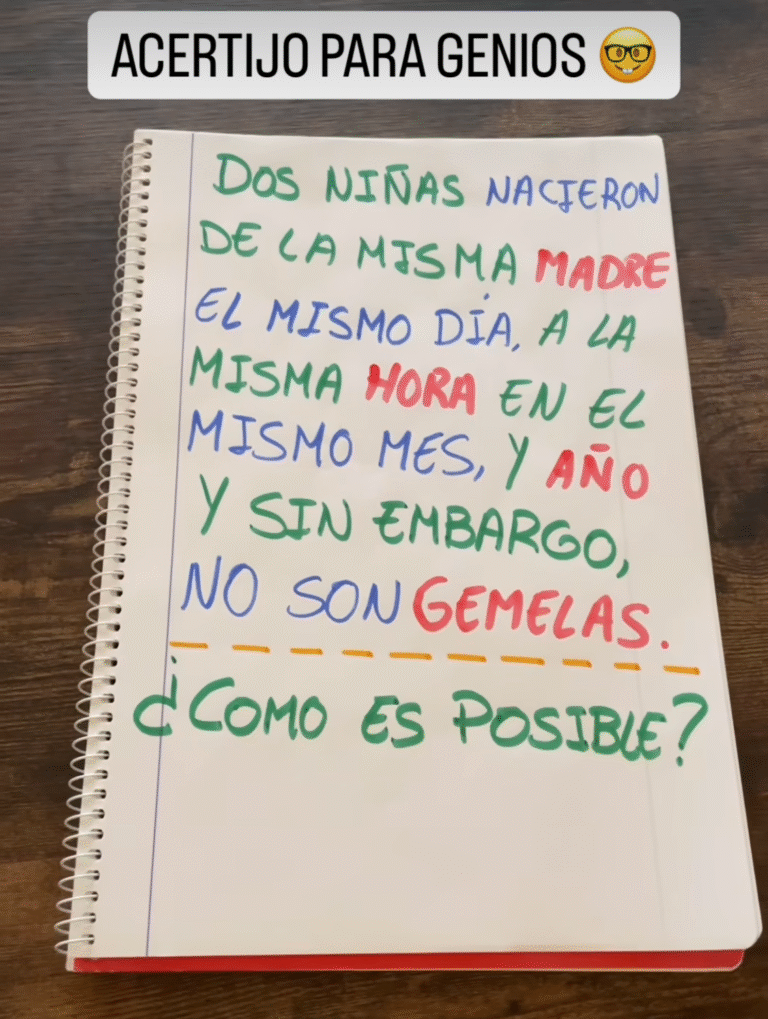 ACERTIJO PARA GENIOS 🤓
DOS NIÑAS NACIERON
DE LA MISMA MADRE
EL MISMO DÍA, A LA
MISMA HORA EN EL
MISMO MES, Y AÑO
Y SIN EMBARGO,
NO SON GEMELAS.
¿COMO ES POSIBLE?